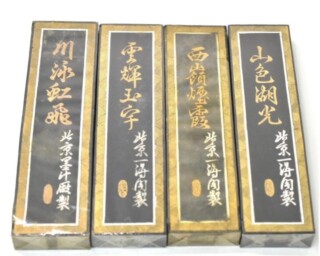 山色湖光
北京一得閣製
西嶺煙霞
北京一得閣製
雲輝玉宇
北京一得閣製
川泳飛
北京墨汁廠製